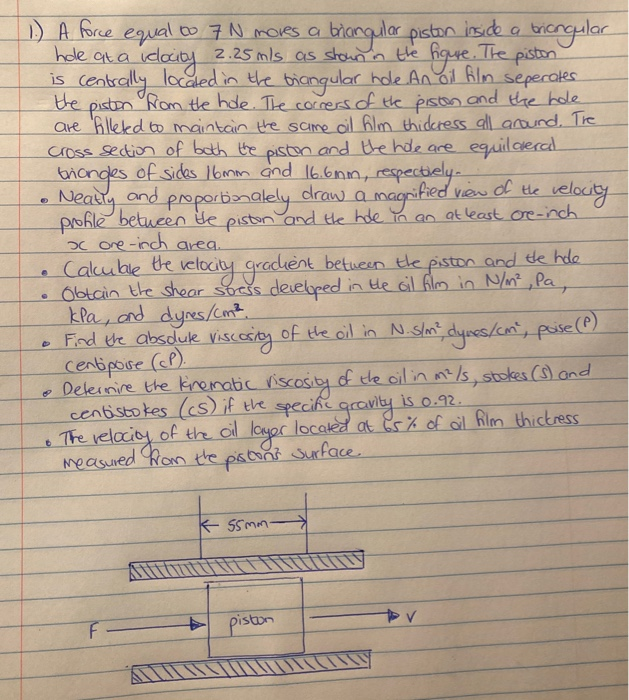 1.) A force equal to 7 N moves a triangular piston inside a triangular
hole at a velocity 2.25 m/s as shown in the figure. The piston
is centrally located in the triangular hole An oil film seperates
the piston from the hole. The corners of the piston and the hole
are filleted to maintain the same oil film thickness all around. The
cross section of both the piston and the hole are equilateral
triangles of sides 16mm and 16.6mm, respectively.
• Neatly and proportionately draw a magnified view of the velocity
profile between the piston and the hole in an at least one-inch
x one-inch area.
• Calculate the velocity gradient between the piston and the hole
• Obtain the shear stress developed in the oil film in N/m², Pa,
kPa, and dynes/cm².
• Find the absolute viscosity of the oil in N.s/m², dynes/cm², poise (P)
centipoise (cP).
• Determine the kinematic viscosity of the oil in m²/s, stokes (S) and
centistokes (cS) if the specific gravity is 0.92.
• The velocity of the oil layer located at 65% of oil film thickness
measured from the piston's surface.
55mm
piston
F
V